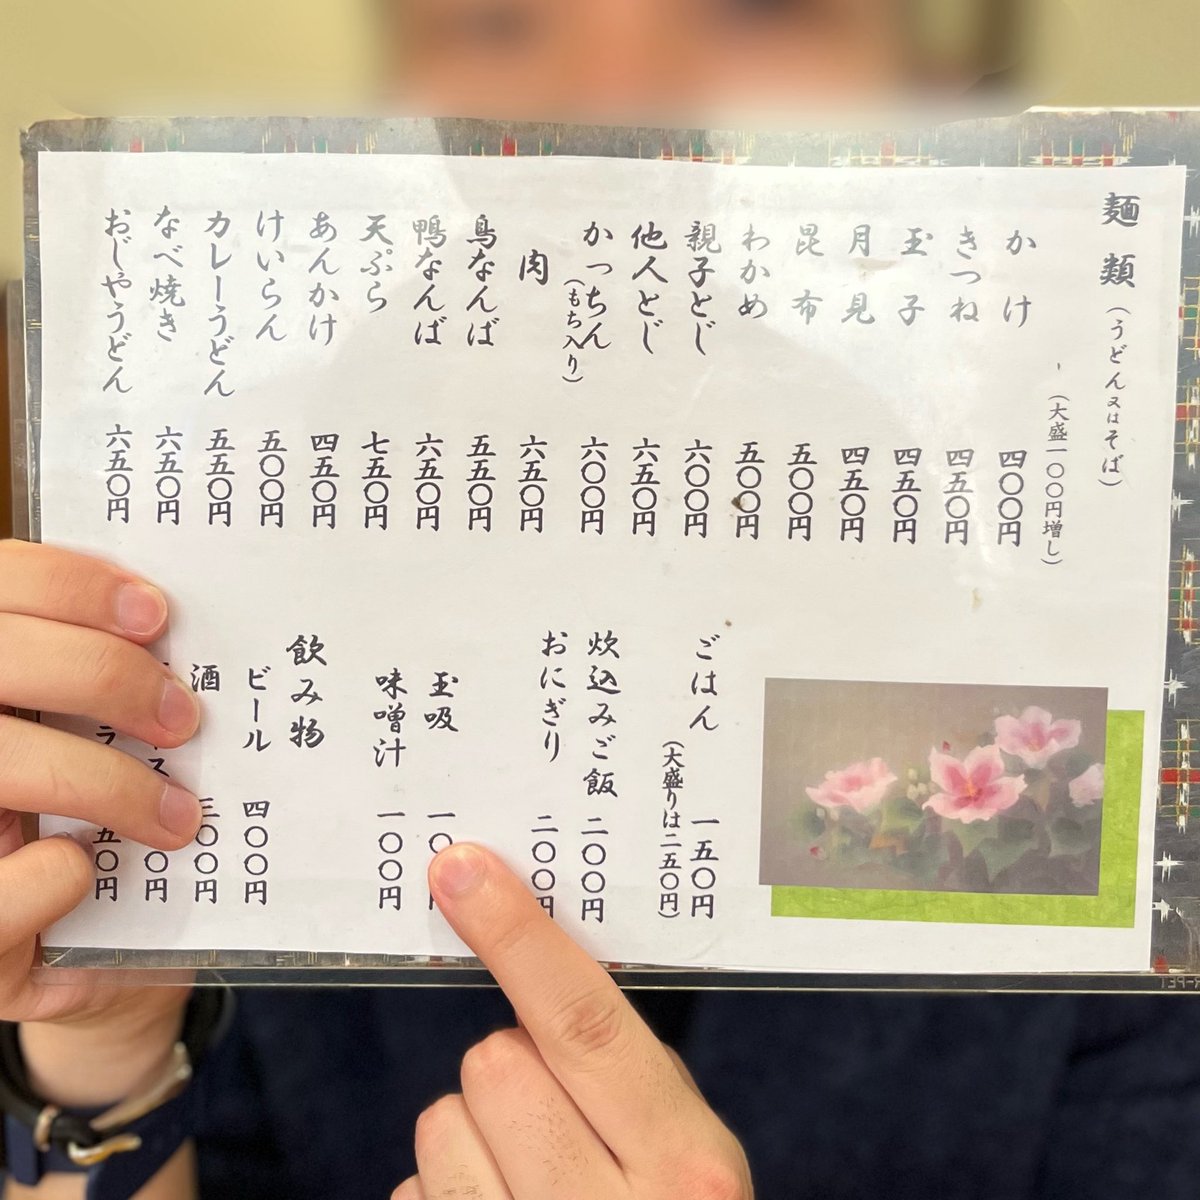 麺類(うどん又はそば)
(大盛一〇〇円増し)
かけ 四〇〇円
きつね 四五〇円
玉子 四五〇円
月見 四五〇円
昆布 五〇〇円
わかめ 五〇〇円
親子とじ 六〇〇円
他人とじ 六五〇円
かっちん(もち入り) 六〇〇円
肉 六五〇円
鳥なんば 五五〇円
鴨なんば 六五〇円
天ぷら 七五〇円
あんかけ 四五〇円
けいらん 五〇〇円
カレーうどん 五五〇円
なべ焼き 六五〇円
おじやうどん 六五〇円
ごはん 一五〇円
(大盛りは二五〇円)
炊込みご飯 二〇〇円
おにぎり 二〇〇円
玉吸 一〇
味噌汁 一〇〇円
飲み物
ビール 四〇〇円
酒 三〇〇円
ス 〇円
ラ 五〇円